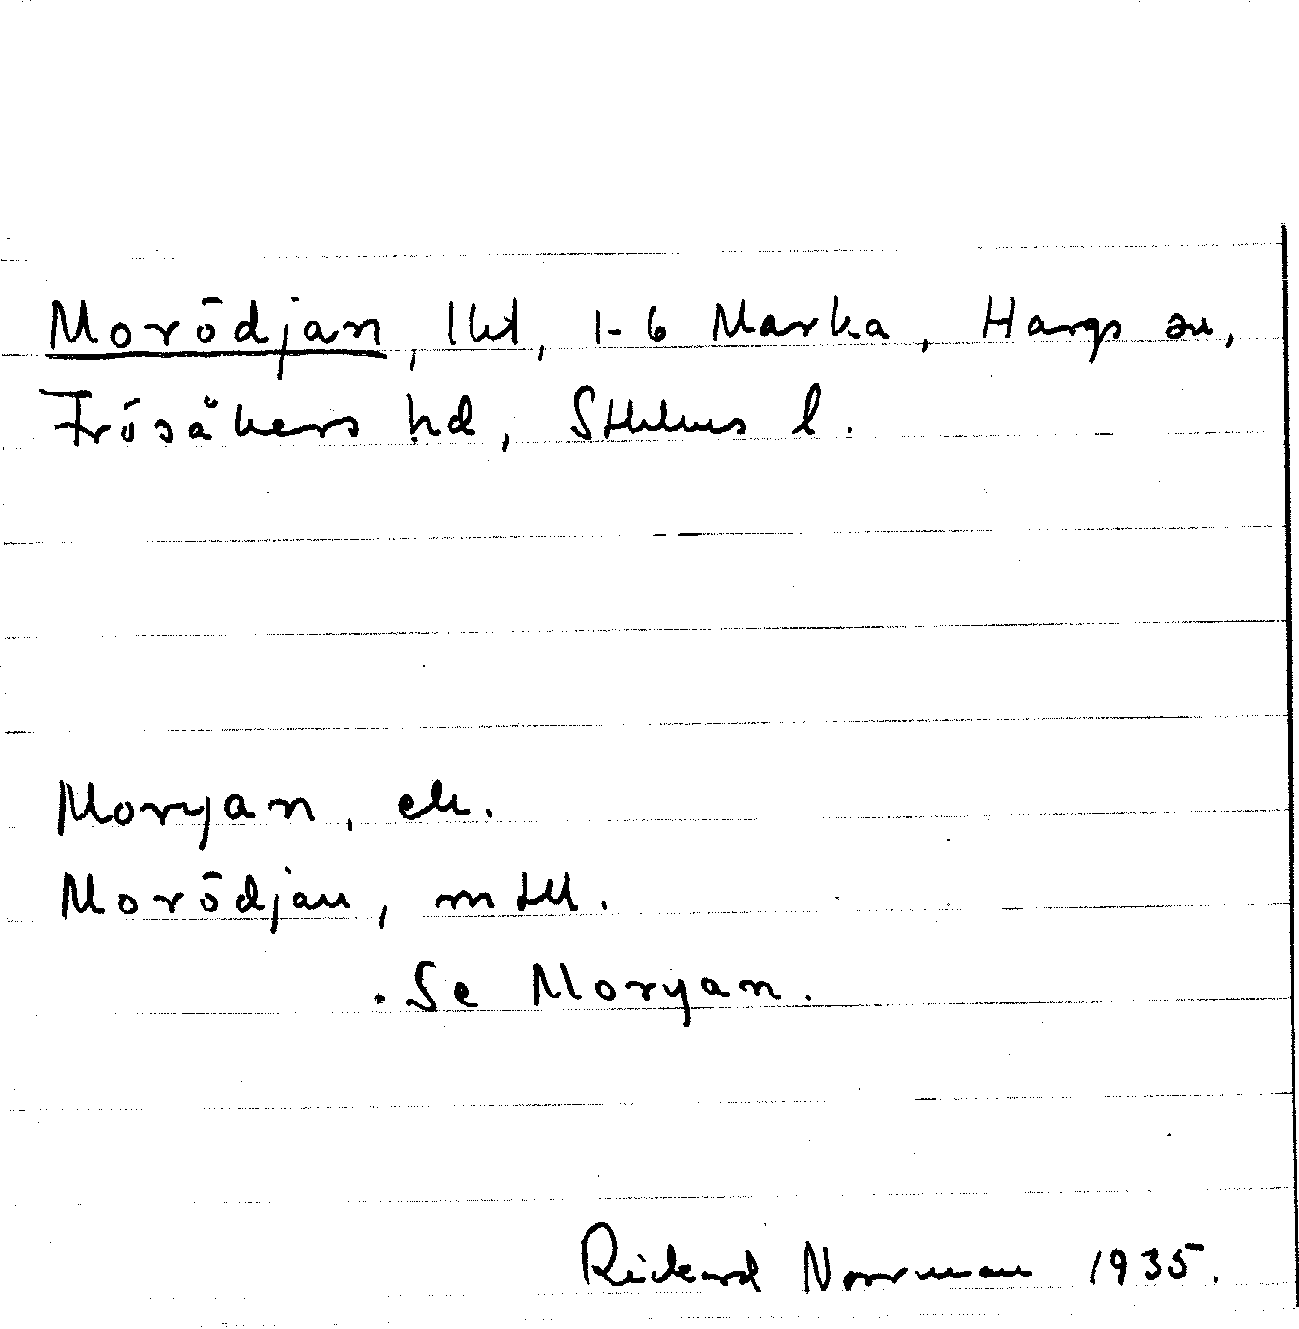 Morödjan, lht, 1-6 Marka, Hargs sn,
Frösåkers hd, Sthlms l.
Moryan, ek.
Morödjan,
Se Moryan.
Rickard Norrman 1935.